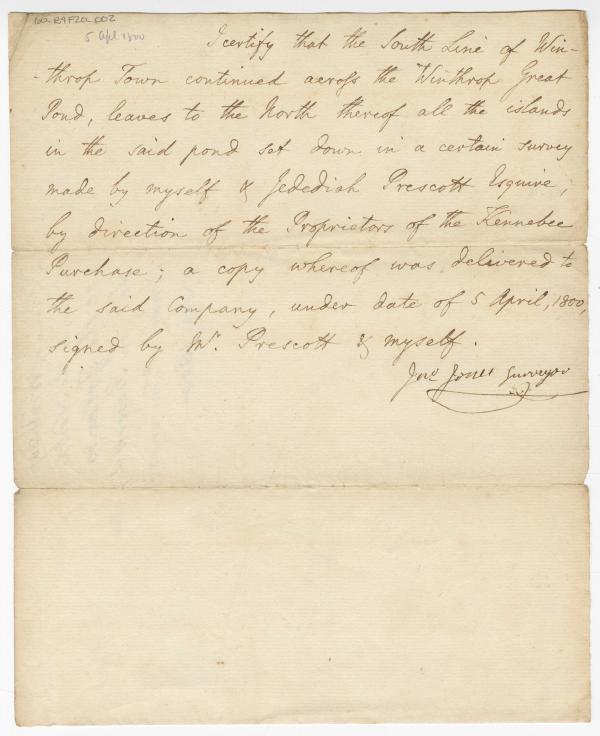 60-B4F20-002
5 Apl 1800
I certify that the South Line of Win-
-throp Town continued across the Winthrop Great
Pond, leaves to the North thereof all the islands
in the said pond set down in a certain survey
made by myself & Jedediah Prescott Esquire,
by direction of the Proprietors of the Kennebec
Purchase; a copy whereof was delivered to
the said Company, under date of 5 April, 1800,
signed by Mr. Prescott & myself.
Jno. Jones Surveyor